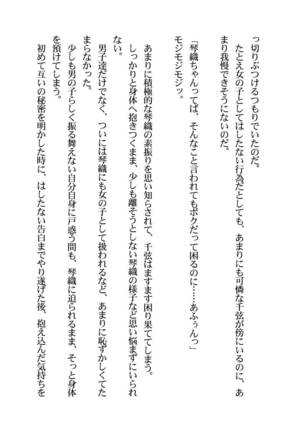 っ切りぶつけるつもりでいたのだ。
　たとえ女の子としてはしたない行為だとしても、あまりにも可憐な千弦が傍にいるのに、あ
まり我慢できそうにないのだ。
「琴織ちゃんってば、そんなこと言われてもボクだって困るのに……あふぅんっ」
モジモジモジッ。
　あまりに積極的な琴織の素振りを思い知らされて、千弦はますます困り果ててしまう。
　しっかりと身体へ抱きつくまま、少しも離そうとしない琴織の様子など思い悩まずにいられ
ない。
　男子達だけでなく、ついには琴織にも女の子として扱われるなど、あまりに恥ずかしくてた
まらなかった。
　少しも男の子らしく振る舞えない自分自身に戸惑う間も、琴織に迫られるまま、そっと身体
を預けてしまう。
　初めて互いの秘密を明かした時に、はしたない告白までやり遂げた後、抱え込んだ気持ちを